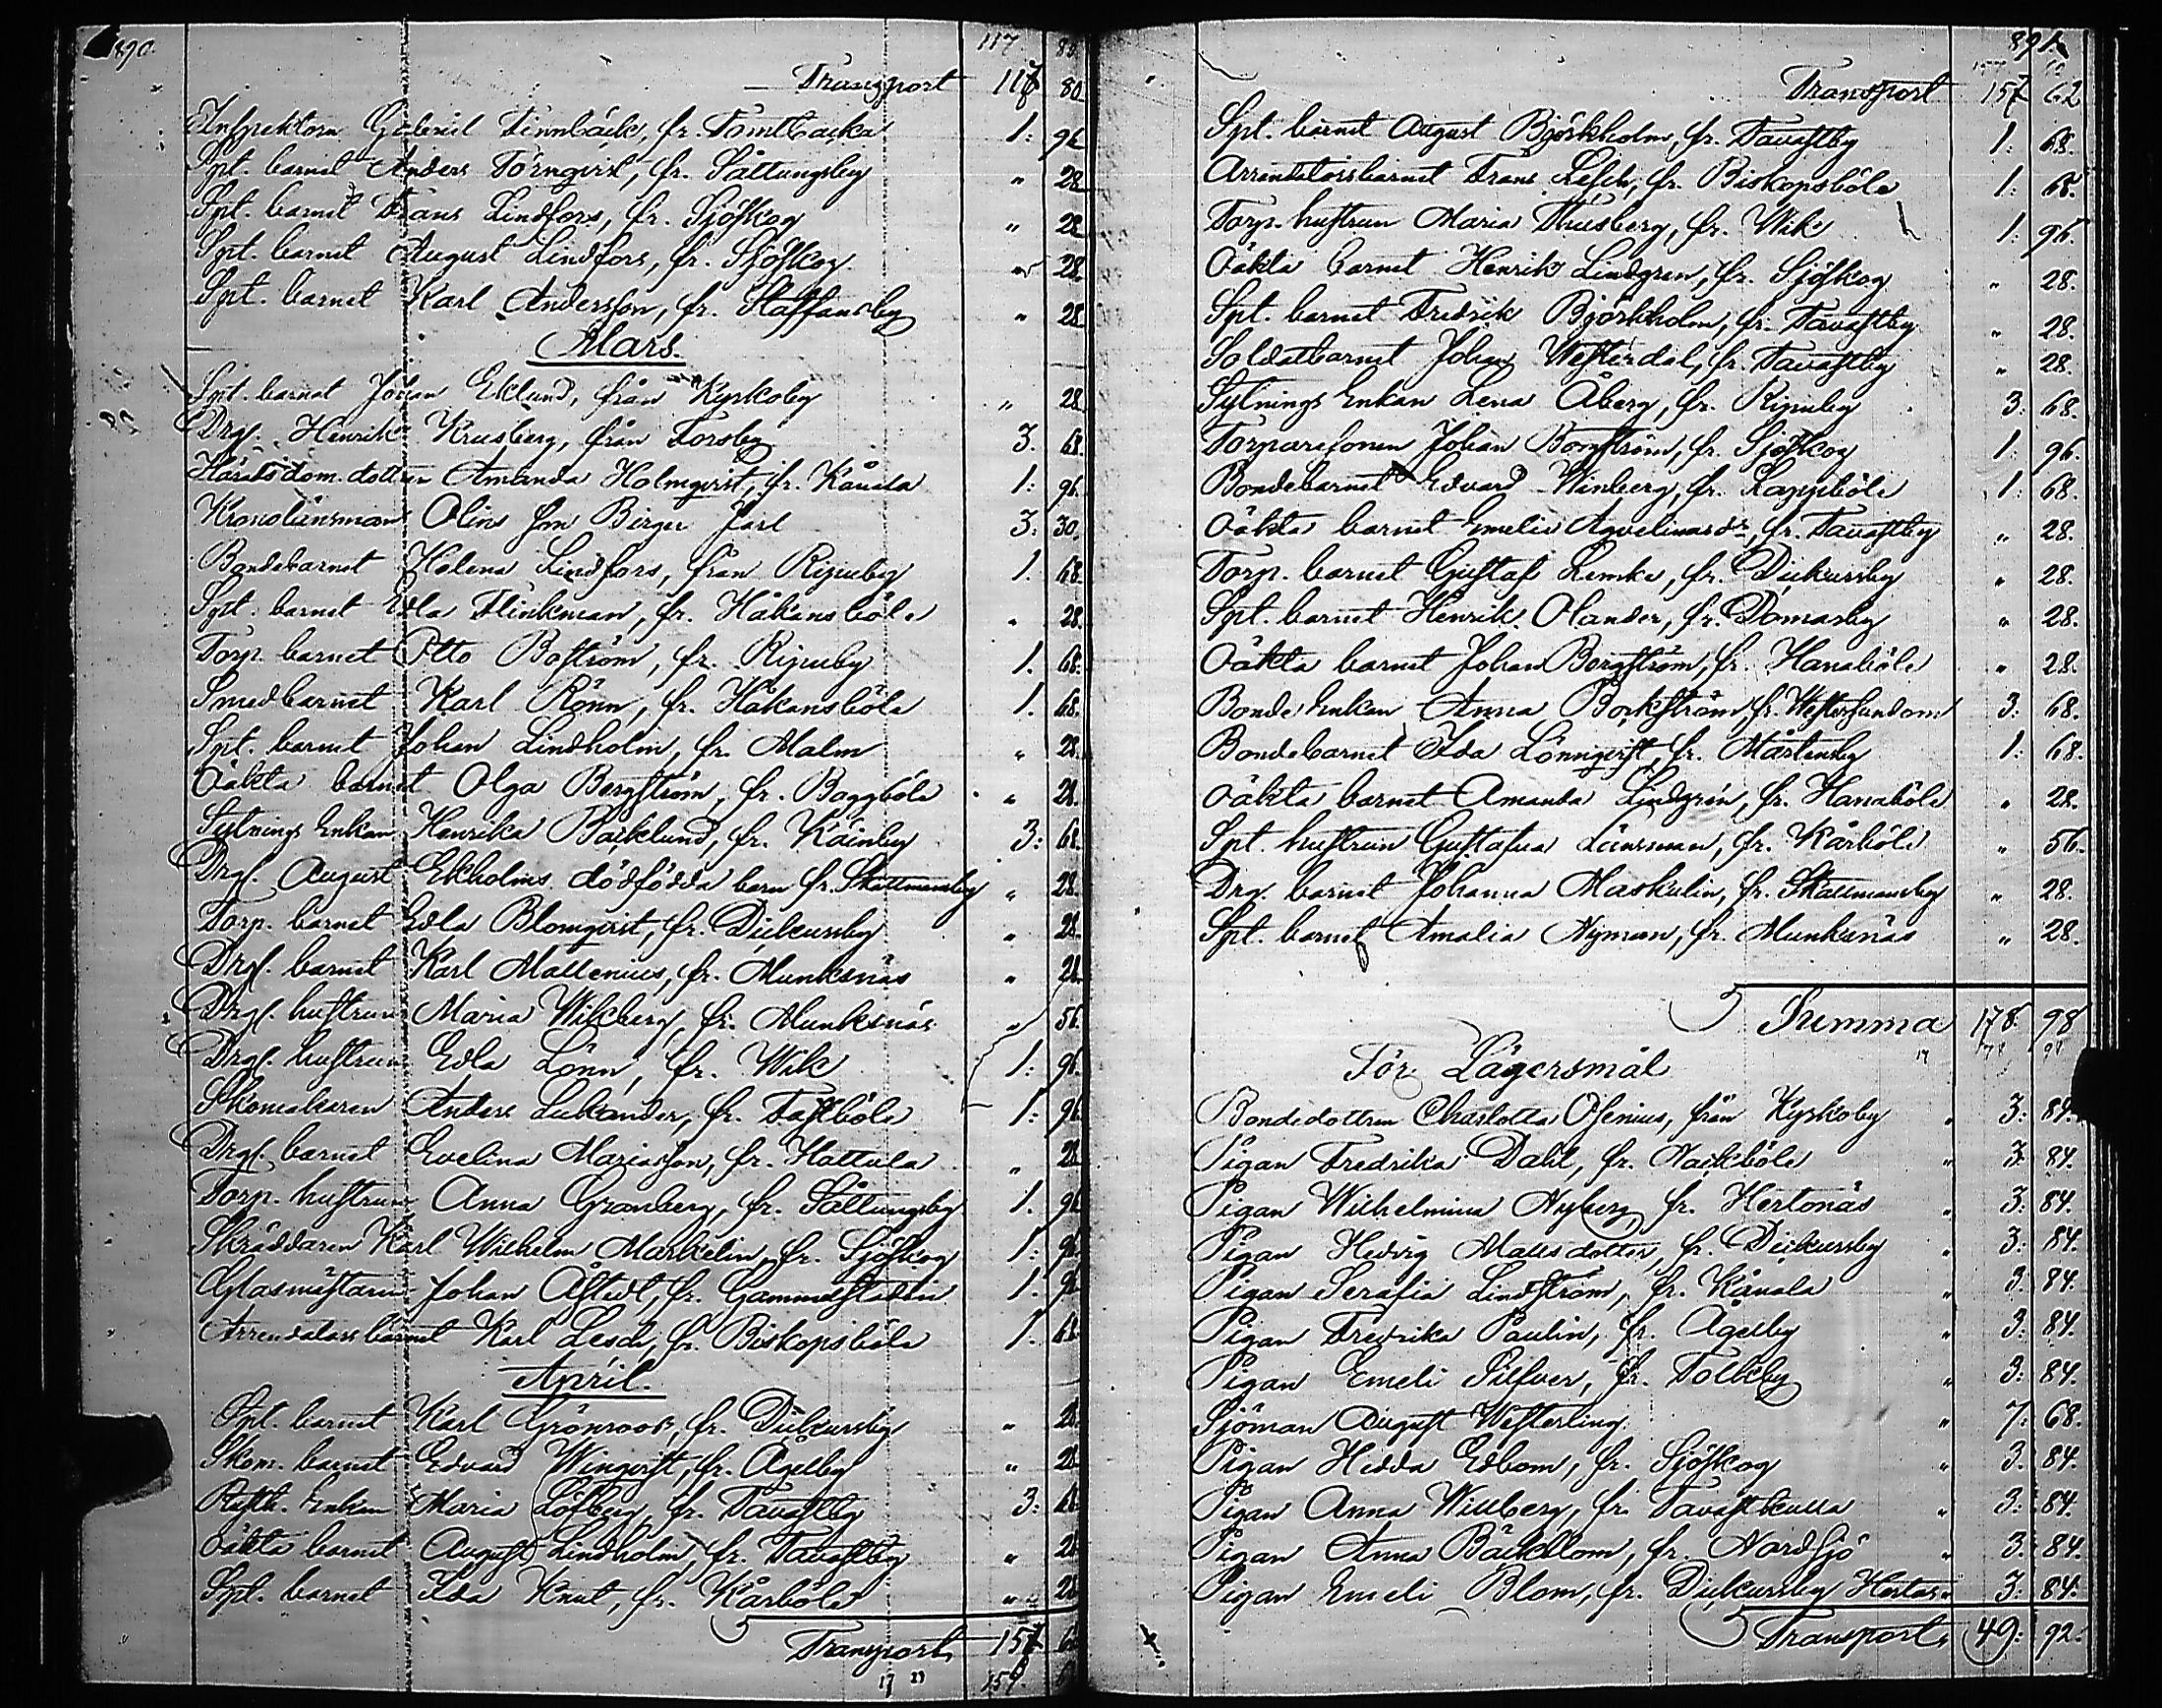 1890.
117 80
Transport 117 80
Inspektorn Gabriel Finnbäck, fr. Tomtbacka 1: 96
Spt. barnet Anders Törnqvist, fr. Såttungsby " 28
Spt. barnet Frans Lindfors, fr. Sjöskog " 28
Spt. barnet August Lindfors, fr. Sjöskog " 28
Spt. barnet Karl Andersson, fr. Staffansby " 28
Mars.
Spt. barnet Johan Eklund, från Kyrkoby " 28
Drgs. Henrik Krusberg, från Forsby 3. 68.
Häradsdom. dottren Amanda Holmqvist, fr. Kånala 1: 96.
Kronolänsman Olins son Birger Jarl 3: 30.
Bondebarnet Helena Lindfors, från Ripuby 1. 68.
Spt. barnet Edla Flinkman, fr. Håkansböle " 28.
Torp. barnet Otto Boström, fr. Ripuby 1. 68.
Smedbarnet Karl Rönn, fr. Håkansböle 1. 68.
Spt. barnet Johan Lindholm, fr. Malm " 28.
Oäkta barnet Olga Bergström, fr. Baggböle " 28.
Sytnings Enkan Henrika Backlund, fr. Käinby 3: 68.
Drgs. August Ekholms dödfödda barn fr. Skattmansby " 28.
Torp. barnet Edla Blomqvist, fr. Dickursby " 28.
Drgs. barnet Karl Mallenius, fr. Munksnäs " 28.
Drgs. hustrun Maria Wikberg, fr. Munksnäs " 56.
Drgs. hustrun Edla Lönn, fr. Wik 1: 96.
Skomakaren Anders Lukander, fr. Fastböle 1: 96
Drgs. barnet Evelina Mariasson, fr. Hattula " 28
Torp. hustrun Anna Granberg, fr. Såttungsby 1. 96
Skräddaren Karl Wilhelm Markelin, fr. Sjöskog 1: 96
Glasmästaren Johan Åstedt, fr. Gammelstaden 1. 96
Arrendators barnet Karl Lesch, fr. Biskopsböle 1. 68
April.
Spt. barnet Karl Grönroos, fr. Dickursby " 28.
Skom. barnet Edvard Winqvist, fr. Ågelby " 28
Rusth. Enkan Maria Löfberg, fr. Tavastby 3: 68.
Oäkta barnet August Lindholm, fr. Tavastby " 28
Spt. barnet Ida Knut, fr. Kårböle " 28
Transport 157 62
891.
Transport 157 62
Spt. barnet August Björkholm, fr. Tavastby 1: 68.
Arrendatorsbarnet Frans Lesch, fr. Biskopsböle 1: 68.
Torp. hustrun Maria Thusberg, fr. Wik 1: 96.
Oäkta barnet Henrik Lindgren, fr. Sjöskog " 28.
Spt. barnet Fredrik Björkholm, fr. Tavastby " 28.
Soldatbarnet Johan Westerdal, fr. Tavastby " 28.
Sytnings Enkan Lena Åberg, fr. Ripuby 3: 68.
Torparesonen Johan Bomström, fr. Sjöskog 1: 96.
Bondebarnet Edvard Winberg, fr. Lappböle 1: 68.
Oäkta barnet Emelie Aqvelinasdr, fr. Tavastby " 28.
Torp. barnet Gustaf Lemke, fr. Dickursby " 28.
Spt. barnet Henrik Olander, fr. Domarby " 28.
Oäkta barnet Johan Bergström, fr. Hanaböle " 28.
Bonde Enkan Anna Borkström, fr. Westersundom 3: 68.
Bondebarnet Ida Lönnqvist, fr. Mårtensby 1: 68.
Oäkta barnet Amanda Lindgrén, fr. Hanaböle " 28.
Spt. hustrun Gustafva Länsman, fr. Kårböle " 56.
Drg. barnet Johanna Maskulin, fr. Skattmansby " 28.
Spt. barnet Amalia Nyman, fr. Munksnäs " 28.
Summa 178. 98
För Lägersmål
Bondedottren Charlotta Osenius, från Kyrkoby " 3: 84.
Pigan Fredrika Dahl, fr. Nackböle " 3. 84.
Pigan Wilhelmina Nyberg, fr. Hertonäs " 3: 84.
Pigan Hedvig Mattsdotter, fr. Dickursby " 3: 84.
Pigan Serafia Lindström, fr. Kånala " 3: 84.
Pigan Fredrika Paulin, fr. Ågelby " 3: 84.
Pigan Emeli Silfver, fr. Tolkby " 3: 84.
Sjöman August Westerling. " 7: 68.
Pigan Hedda Edbom, fr. Sjöskog " 3: 84.
Pigan Anna Willberg, fr. Tavastkulla " 3: 84.
Pigan Anna Bäckblom, fr. Nordsjö " 3: 84.
Pigan Emeli Blom, fr. Dickursby 3: 84.
Transport 49: 92.